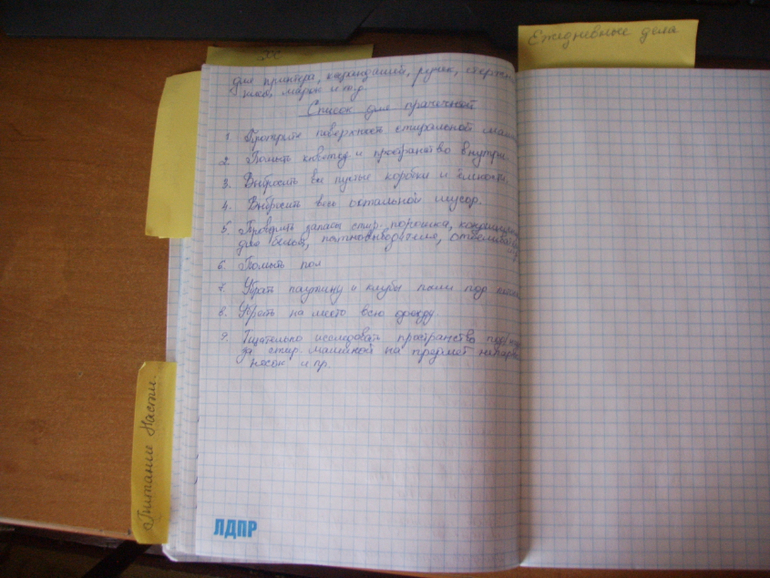 Ежедневные дела
для принтера, карандашей, ручек,
клея, марок и т.д.
Список для прачечной
1. Протереть поверхность стиральной
2. Помыть кювету и пространство внутри
3. Выбросить все пустые коробки и ёмкости.
4. Выбросить весь остальной мусор.
5. Проверить запасы стир. порошка,
для белья, пятновыводителя,
6. Помыть пол
7. Убрать паутину и клубы пыли под
8. Убрать на место всю одежду.
9. Тщательно исследовать пространство
за стир. машинкой на предмет
носок и пр.
Питание Насти.
ЛДПР